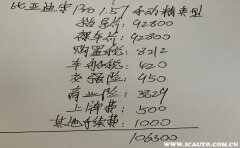 比亚迪宋Pro 1.5T 手动精英型
指导价: 92800
裸车价: 92800
购置税: 8212
车船税: 420
交强险: 950
商业险: 3829
上牌费: 500
其他手续费: 1000
106300
爱卡汽车
WWW.XCAUTO.COM.CN